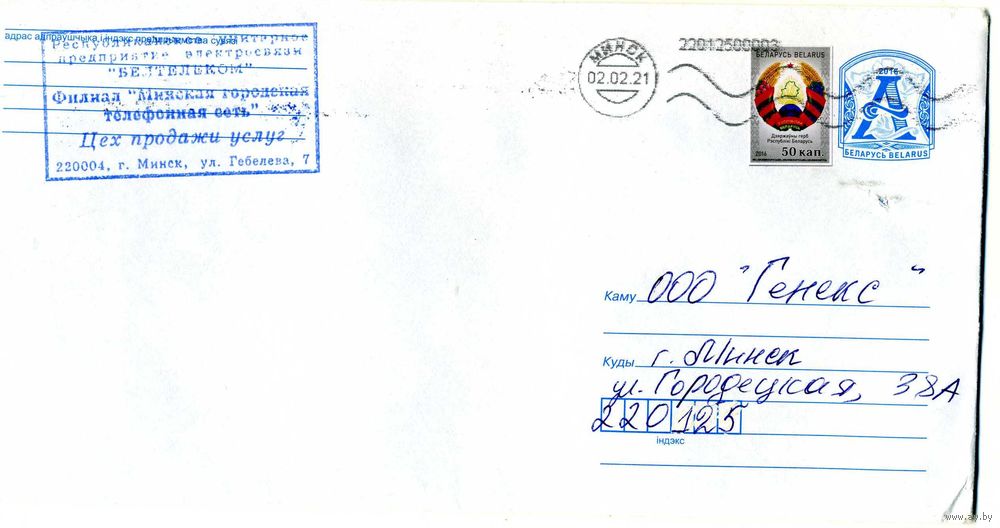 адрас адпраўшчыка і індэкс прадпрыемства сувязі
Республиканское унитарное
предприятие электросвязи
"БЕЛТЕЛЕКОМ"
Филиал "Минская городская
телефонная сеть"
Цех продажи услуг
220004, г. Минск, ул. Гебелева, 7
МИНСК
02.02.21
22012500003
БЕЛАРУСЬ BELARUS
Дзяржаўны герб
Рэспублікі Беларусь
2016 50 кап.
2016
А
БЕЛАРУСЬ BELARUS
Каму ООО "Генекс"
Куды г. Минск
ул. Городецкая, 38А
220125
індэкс
www.ay.by